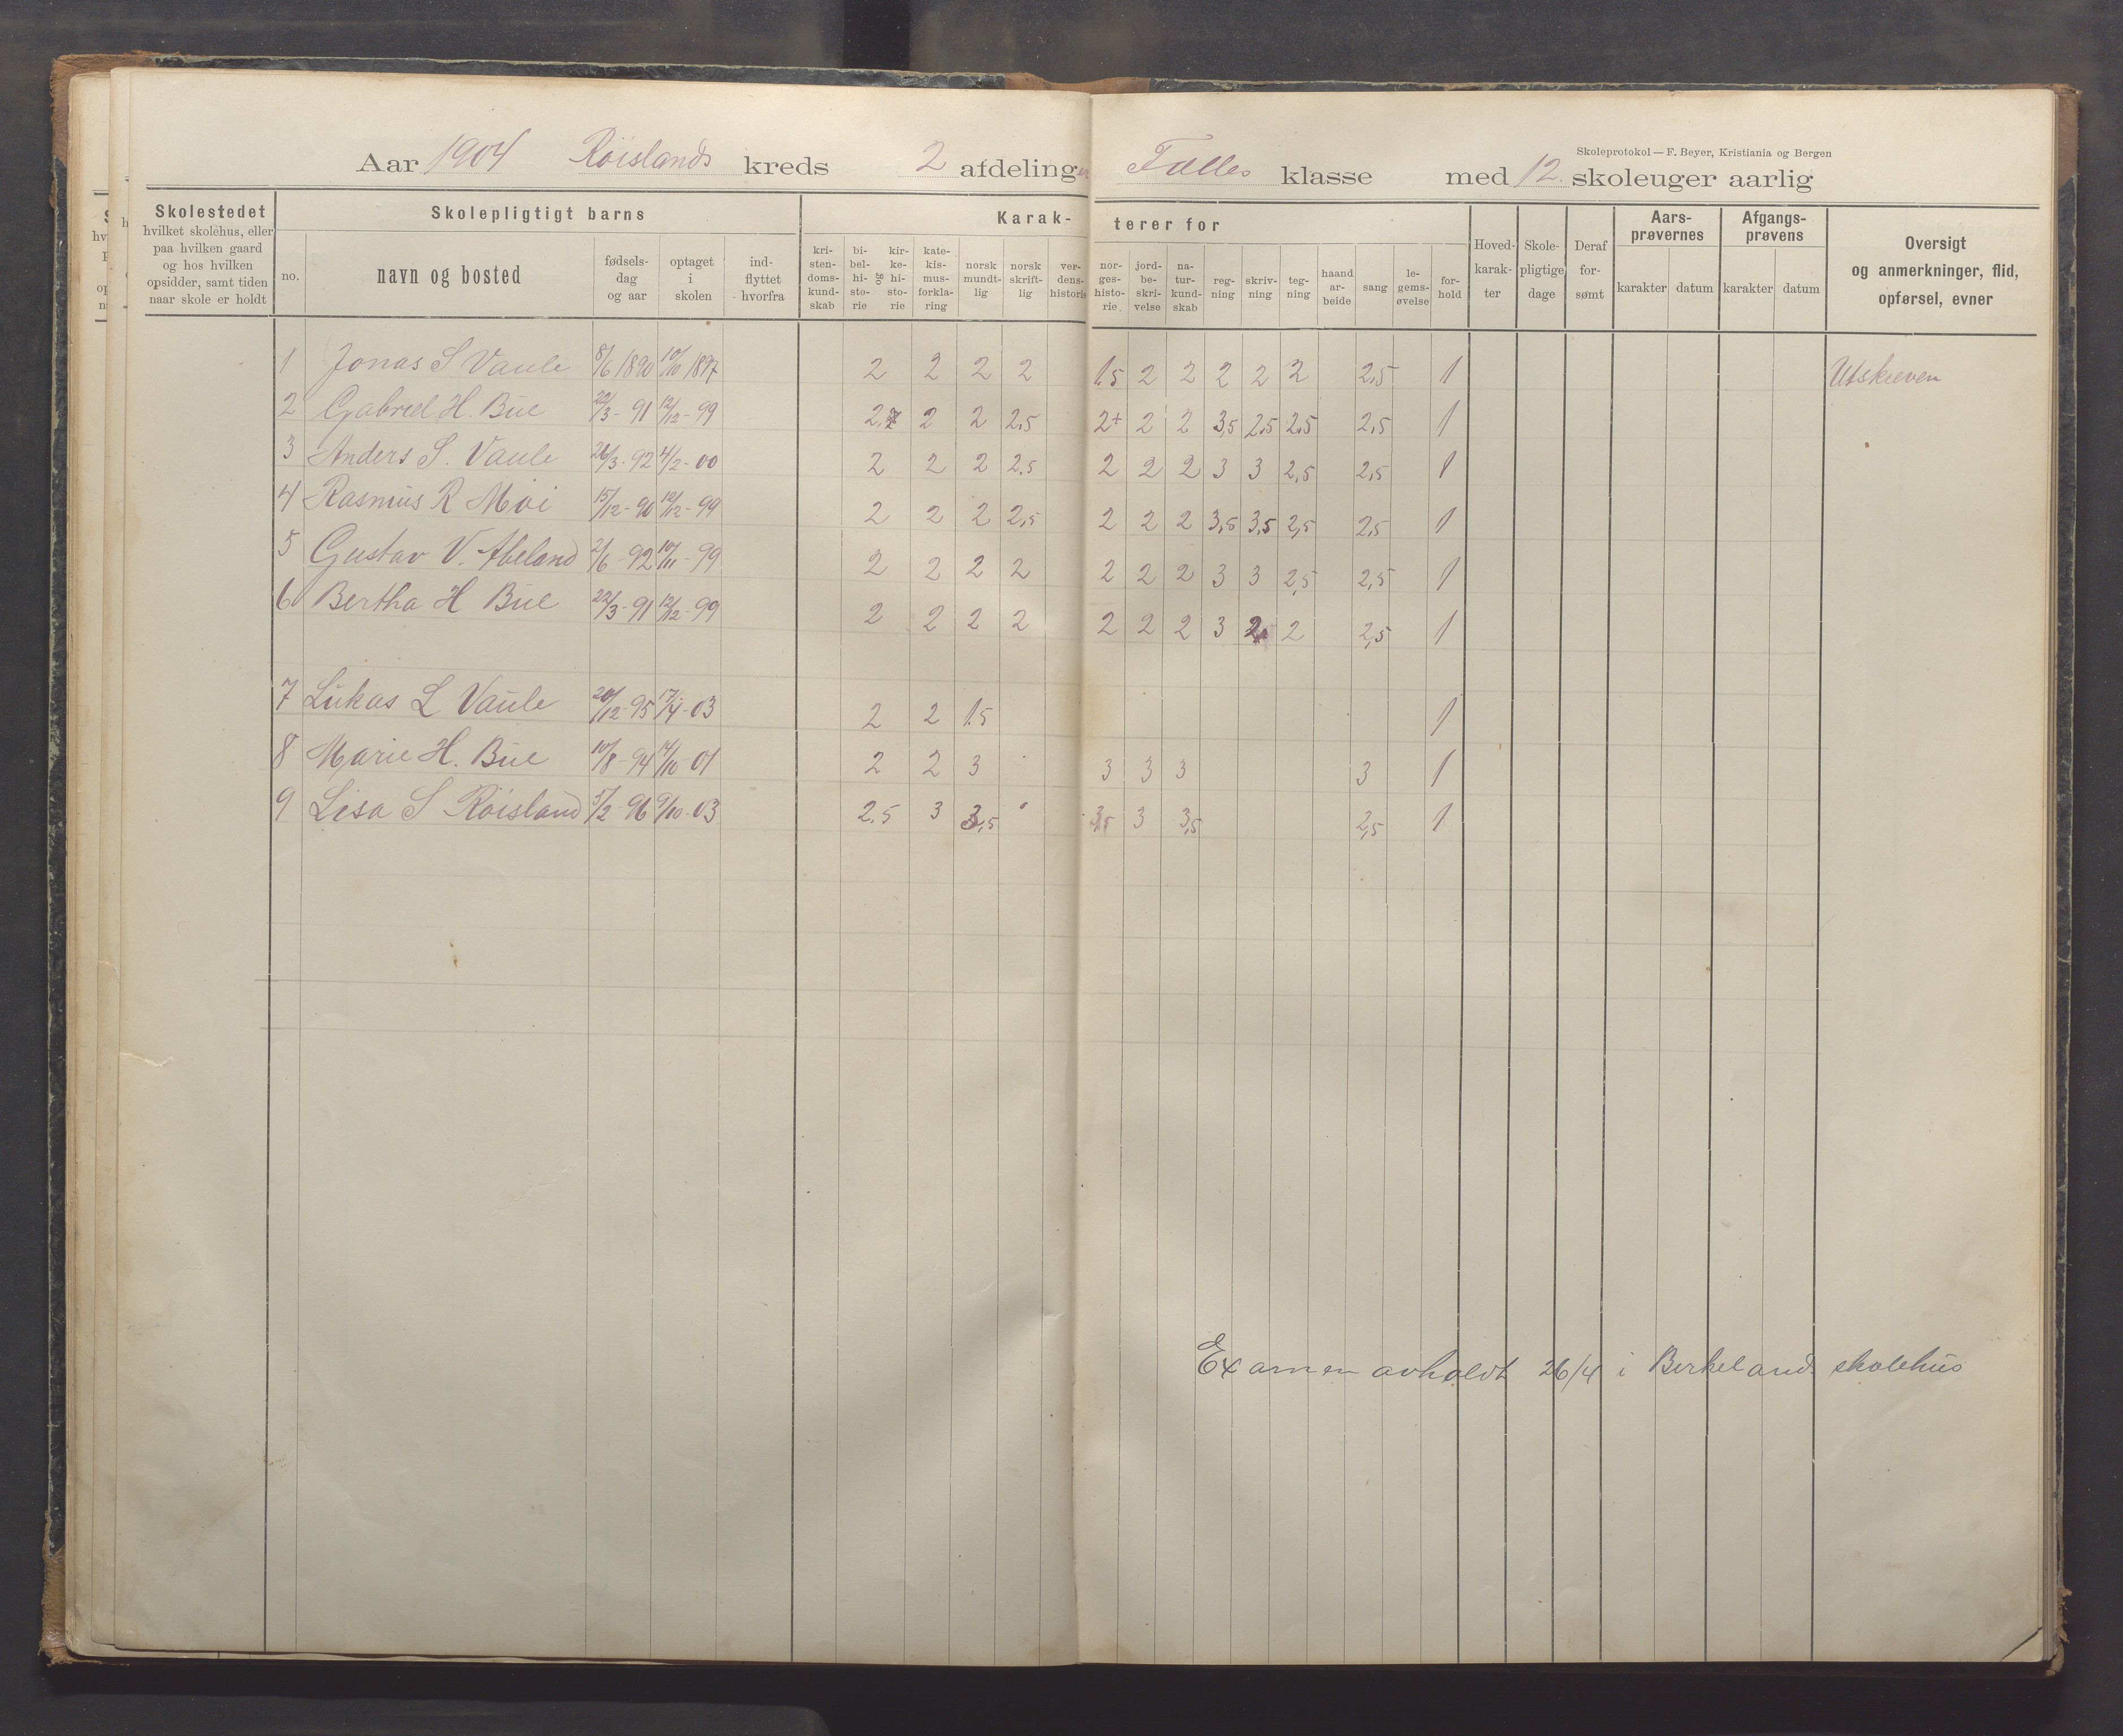 Skoleprotokol — F. Beyer, Kristiania og Bergen
Aar 1904 Røislands kreds 2 afdelinger Fælles klasse med 12 skoleuger aarlig
Skolestedet
hvilket skolehus, eller
paa hvilken gaard
og hos hvilken
opsidder, samt tiden
naar skole er holdt
Skolepligtigt barns
no.
navn og bosted
fødsels-
dag
og aar
optaget
i
skolen
ind-
flyttet
hvorfra
Karak-
terer for
kri-
sten-
doms-
kund-
skab
bi-
bel-
hi-
sto-
rie
og
kir-
ke-
hi-
sto-
rie
kate-
kis-
mus-
forkla-
ring
norsk
mundt-
lig
norsk
skrift-
lig
ver-
dens-
historie
nor-
ges-
histo-
rie
jord-
be-
skri-
velse
na-
tur-
kund-
skab
reg-
ning
skriv-
ning
teg-
ning
haand
ar-
beide
sang
le-
gems-
øvelse
for-
hold
Hoved-
karak-
ter
Skole-
pligtige
dage
Deraf
for-
sømt
Aars-
prøvernes
karakter datum
Afgangs-
prøvens
karakter datum
Oversigt
og anmerkninger, flid,
opførsel, evner
1 Jonas S. Vaule 8/6 1890 10/10 1897 2 2 2 2 1.5 2 2 2 2 2 2,5 1 Utskreven
2 Gabriel H. Bue 22/3 - 91 12/12 - 99 2 2 2 2,5 2+ 2 2 3,5 2,5 2,5 2,5 1
3 Anders S. Vaule 26/3 - 92 4/2 - 00 2 2 2 2.5 2 2 2 3 3 2,5 2,5 1
4 Rasmus R Moi 15/12 - 90 12/12 - 99 2 2 2 2,5 2 2 2 3,5 3,5 2,5 2,5 1
5 Gustav V. Abeland 2/6 - 92 10/11 - 99 2 2 2 2 2 2 2 3 3 2,5 2,5 1
6 Bertha H Bue 22/3 - 91 12/12 - 99 2 2 2 2 2 2 2 3 2 2 2,5 1
7 Lukas L Vaule 20/12 - 95 17/4 - 03 2 2 1.5 1
8 Marie H. Bue 10/8 - 94 14/10 - 01 2 2 3 3 3 3 3 1
9 Lisa S Røisland 5/2 - 96 9/10 - 03 2.5 3 3,5 3,5 3 3,5 2,5 1
Examen avholdt 26/4 i Berkelands skolehus